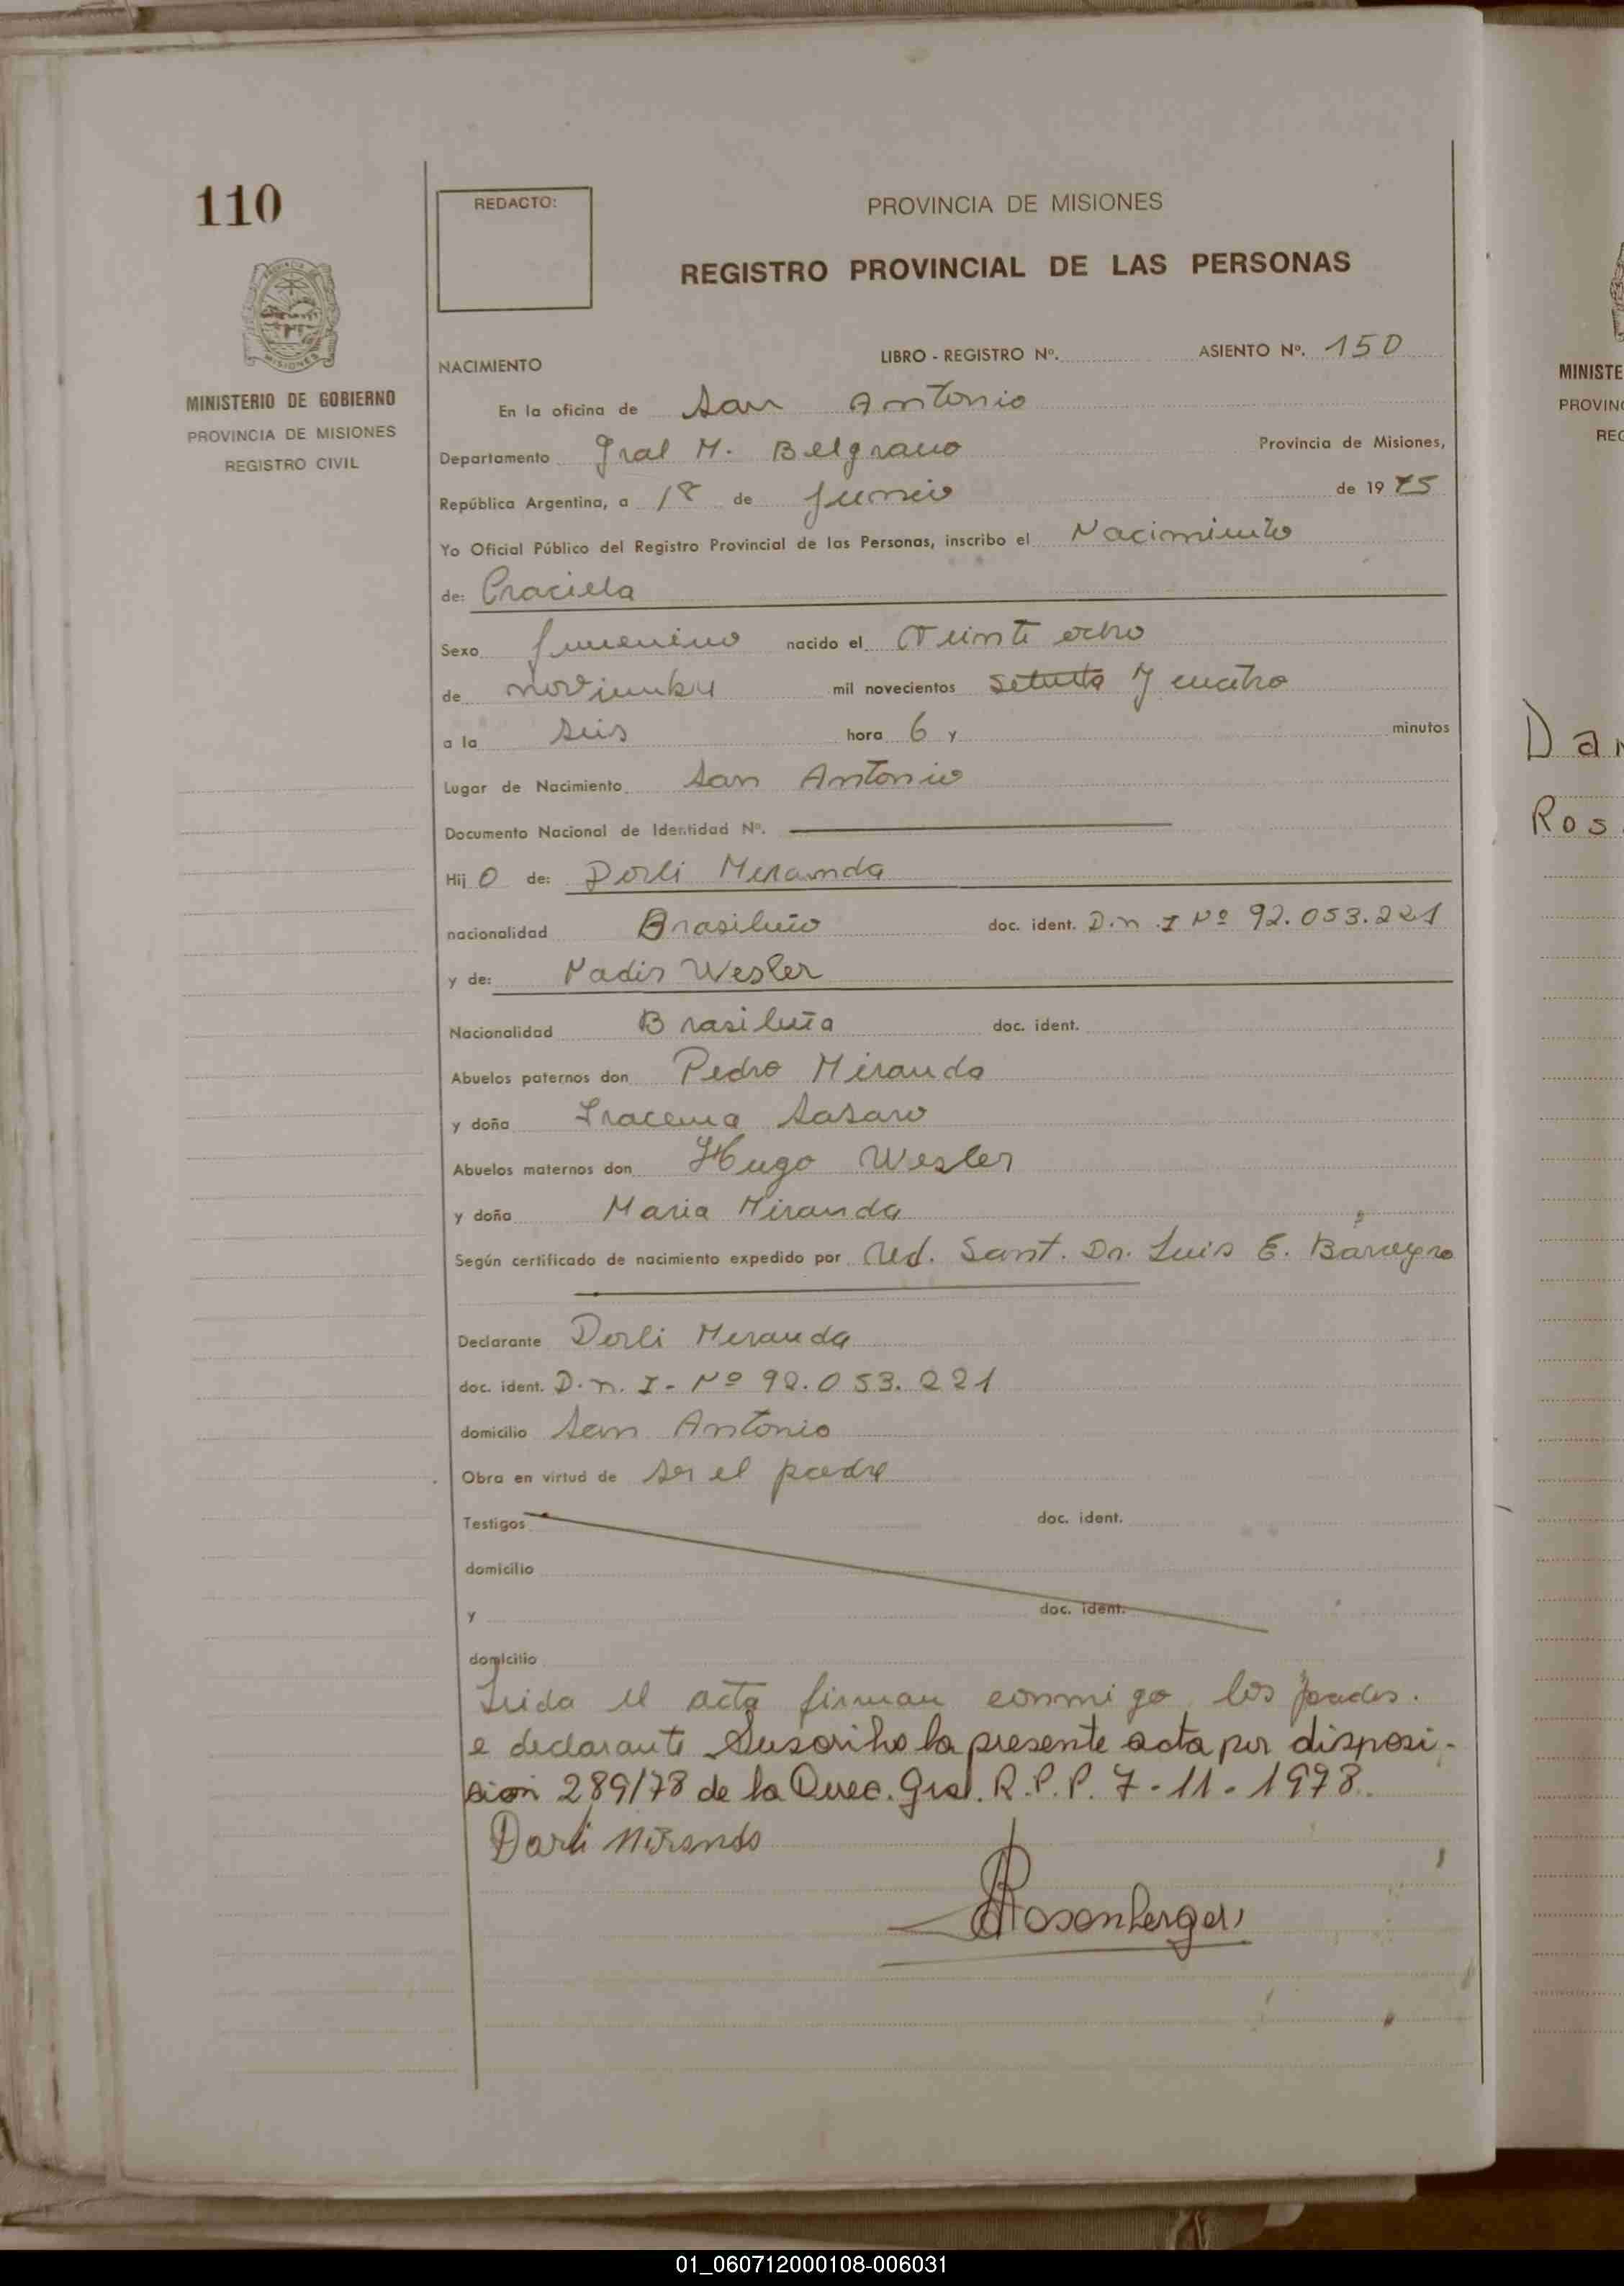 110
REDACTO:
PROVINCIA DE MISIONES
REGISTRO PROVINCIAL DE LAS PERSONAS
MINISTERIO DE GOBIERNO
PROVINCIA DE MISIONES
REGISTRO CIVIL
NACIMIENTO LIBRO - REGISTRO Nº. ASIENTO Nº. 150
En la oficina de San Antonio
Departamento Gral M. Belgrano Provincia de Misiones,
República Argentina, a 18 de Junio de 1975
Yo Oficial Público del Registro Provincial de las Personas, inscribo el Nacimiento
de: Graciela
Sexo femenino nacido el Veinte ocho
de noviembre mil novecientos setenta y cuatro
a la seis hora 6 y minutos
Lugar de Nacimiento San Antonio
Documento Nacional de Identidad Nº.
Hij O de: Dorli Meranda
nacionalidad Brasileño doc. ident. D.n.I Nº 92.053.221
y de: Nadir Wesler
Nacionalidad Brasileña doc. ident.
Abuelos paternos don Pedro Miranda
y doña Iracema
Abuelos maternos don Hugo Wesler
y doña Maria Miranda
Según certificado de nacimiento expedido por Sant. Dr. Luis E.
Declarante Derli Meranda
doc. ident. D.n.I- Nº 92.053.221
domicilio San Antonio
Obra en virtud de ser el padre
Testigos doc. ident.
domicilio
y doc. ident.
domicilio
Leida el acta firman conmigo los padres.
e declarante Suscribo la presente acta por disposi-
sion 289/78 de la Direc. Gral. R.P.P. 7-11-1978.
Darli Miranda
Rosenberger
MINISTE
PROVIN
REG
Dar
Ros
01_060712000108-006031